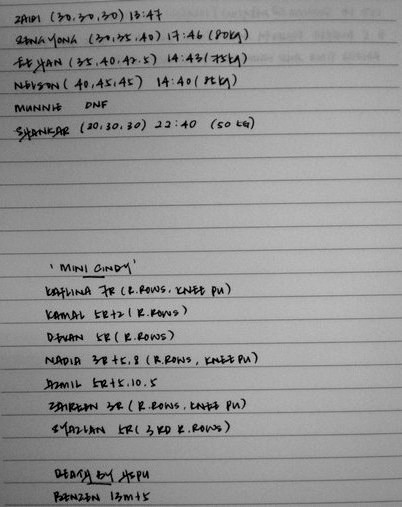 ZAIDI (30,30,30) 13:47
SENG YONG (30,35,40) 17:46 (80kg)
EE JIAN (35,40,42.5) 14:43 (75kg)
NELSON (40,45,45) 14:40 (85kg)
MUNNIE DNF
SHANKAR (20,30,30) 22:40 (50 KG)
'MINI CINDY'
KAFLINA 7R (R.ROWS, KNEE PU)
KAMAL 5R+2 (R.ROWS)
5R (R.ROWS)
NADIA 3R+5,8 (R.ROWS, KNEE PU)
AZMIL 5R+5,10,5
ZAIREEN 3R (R.ROWS, KNEE PU)
SYAZLAN 5R (3RD R.ROWS)
DEATH BY HSPU
BENZEN 13m+5